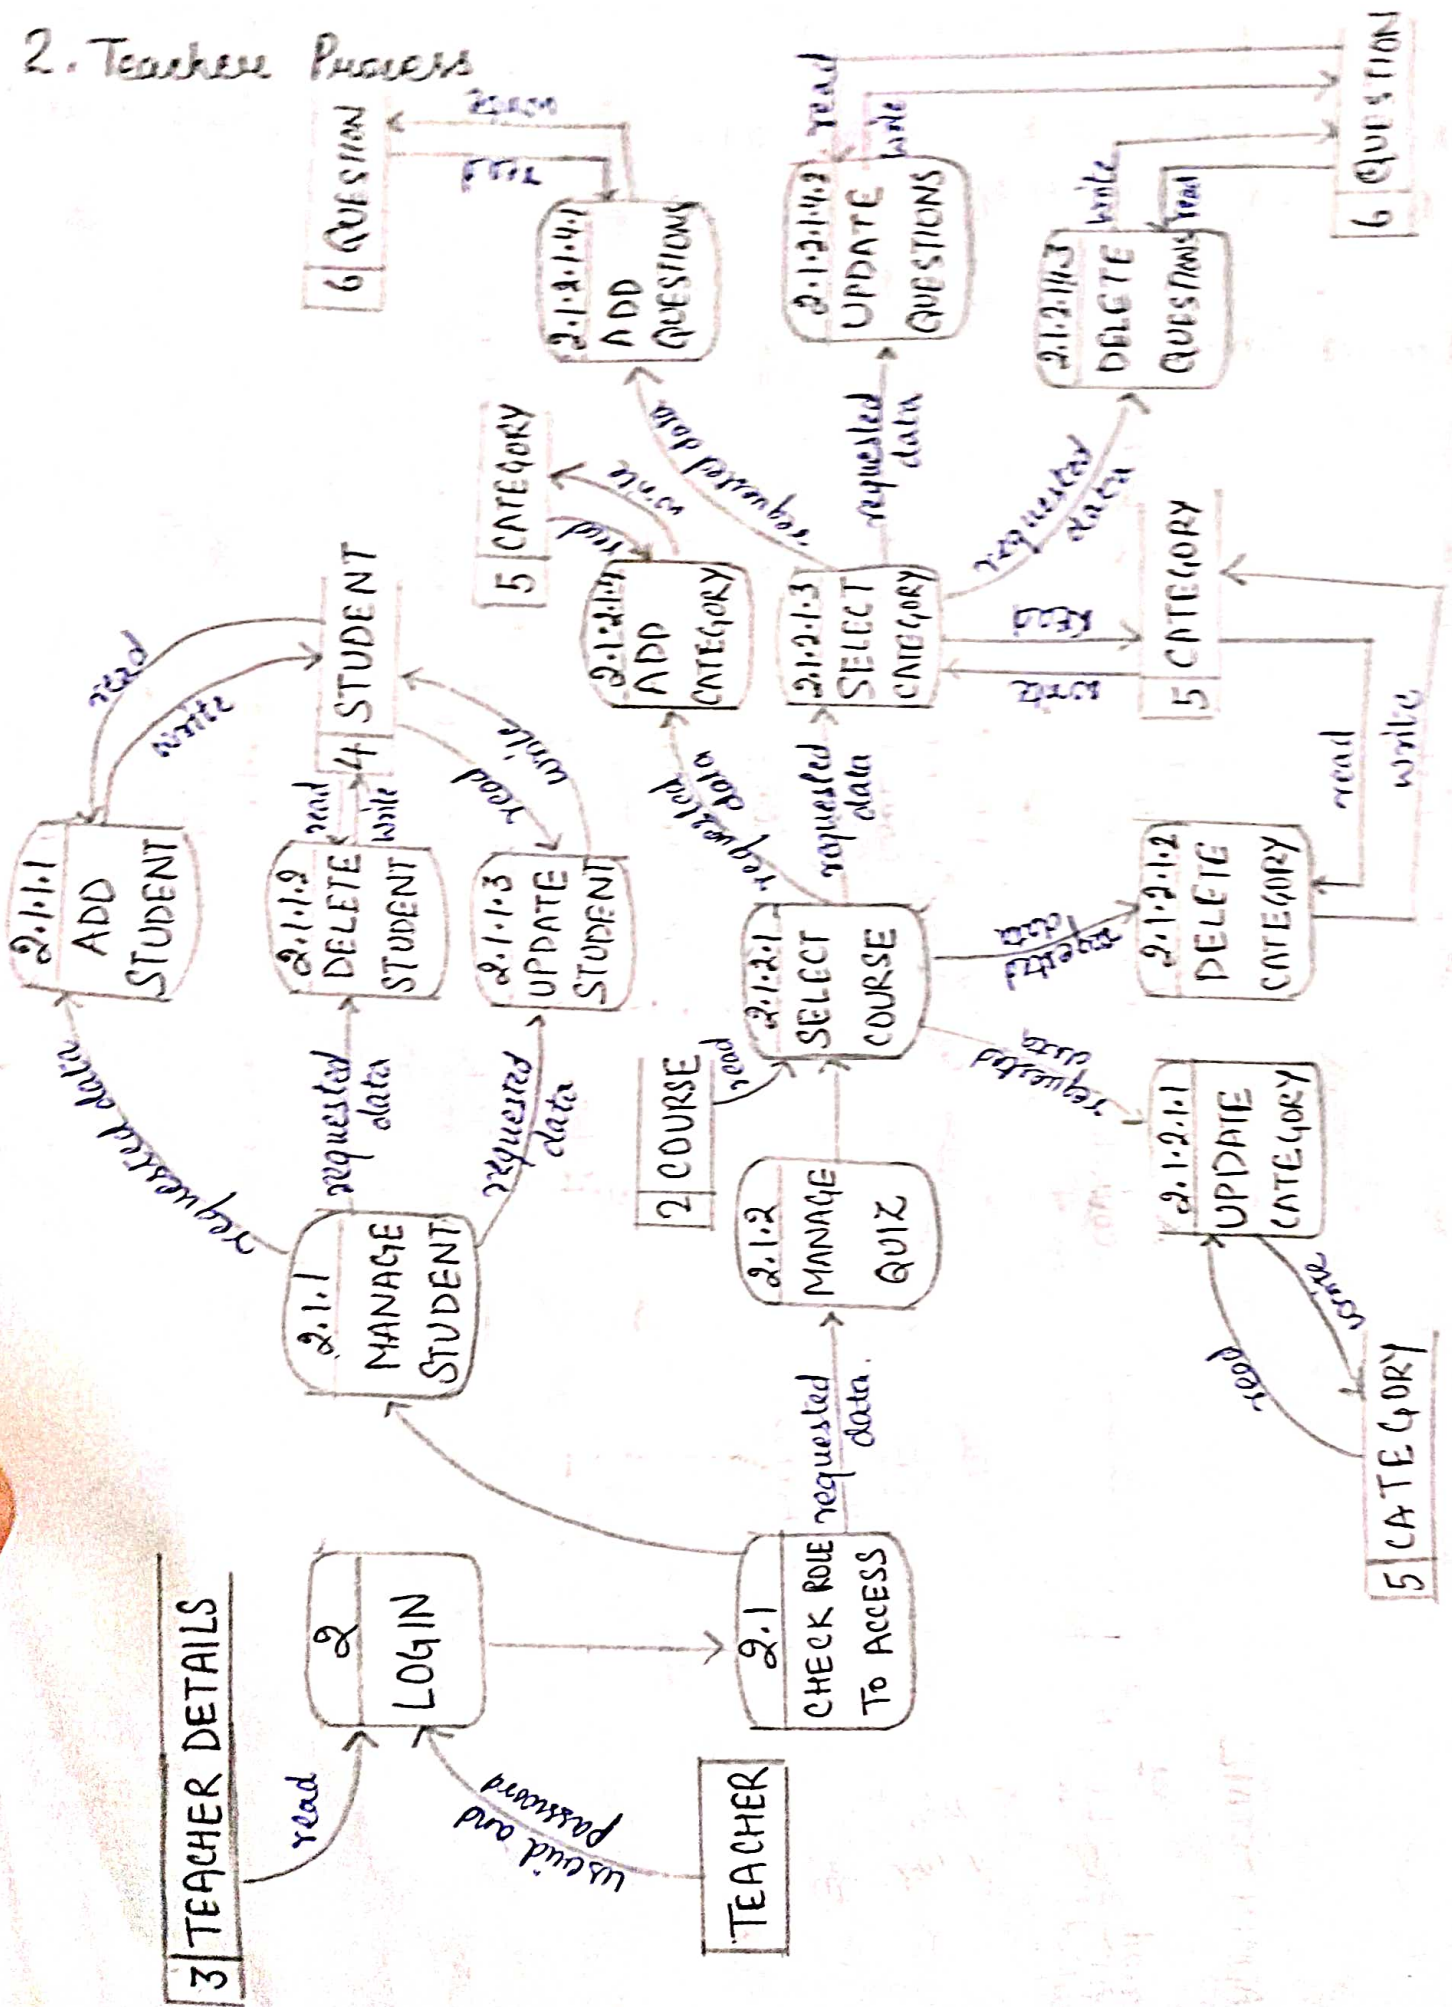 2. Teacher Process
3 TEACHER DETAILS
read
2
LOGIN
userid and
password
TEACHER
2.1
CHECK ROLE
TO ACCESS
requested
data.
2.1.1
MANAGE
STUDENT
requested data
requested
data
requested
data
2.1.1.1
ADD
STUDENT
read
write
2.1.1.2
DELETE
STUDENT
read
write
2.1.1.3
UPDATE
STUDENT
read
write
4 STUDENT
2.1.2
MANAGE
QUIZ
2 COURSE
read
2.1.2.1
SELECT
COURSE
requested
data
requested
data
requested
data
requested
data
2.1.2.1.1
UPDATE
CATEGORY
read
write
5 CATEGORY
2.1.2.1.2
DELETE
CATEGORY
read
write
5 CATEGORY
2.1.2.1.3
SELECT
CATEGORY
read
write
2.1.2.1.4
ADD
CATEGORY
read
write
5 CATEGORY
requested data
requested
data
requested
data
2.1.2.1.4.1
ADD
QUESTIONS
6 QUESTION
2.1.2.1.4.2
UPDATE
QUESTIONS
read
write
DELETE
QUESTIONS
write
read
6 QUESTION